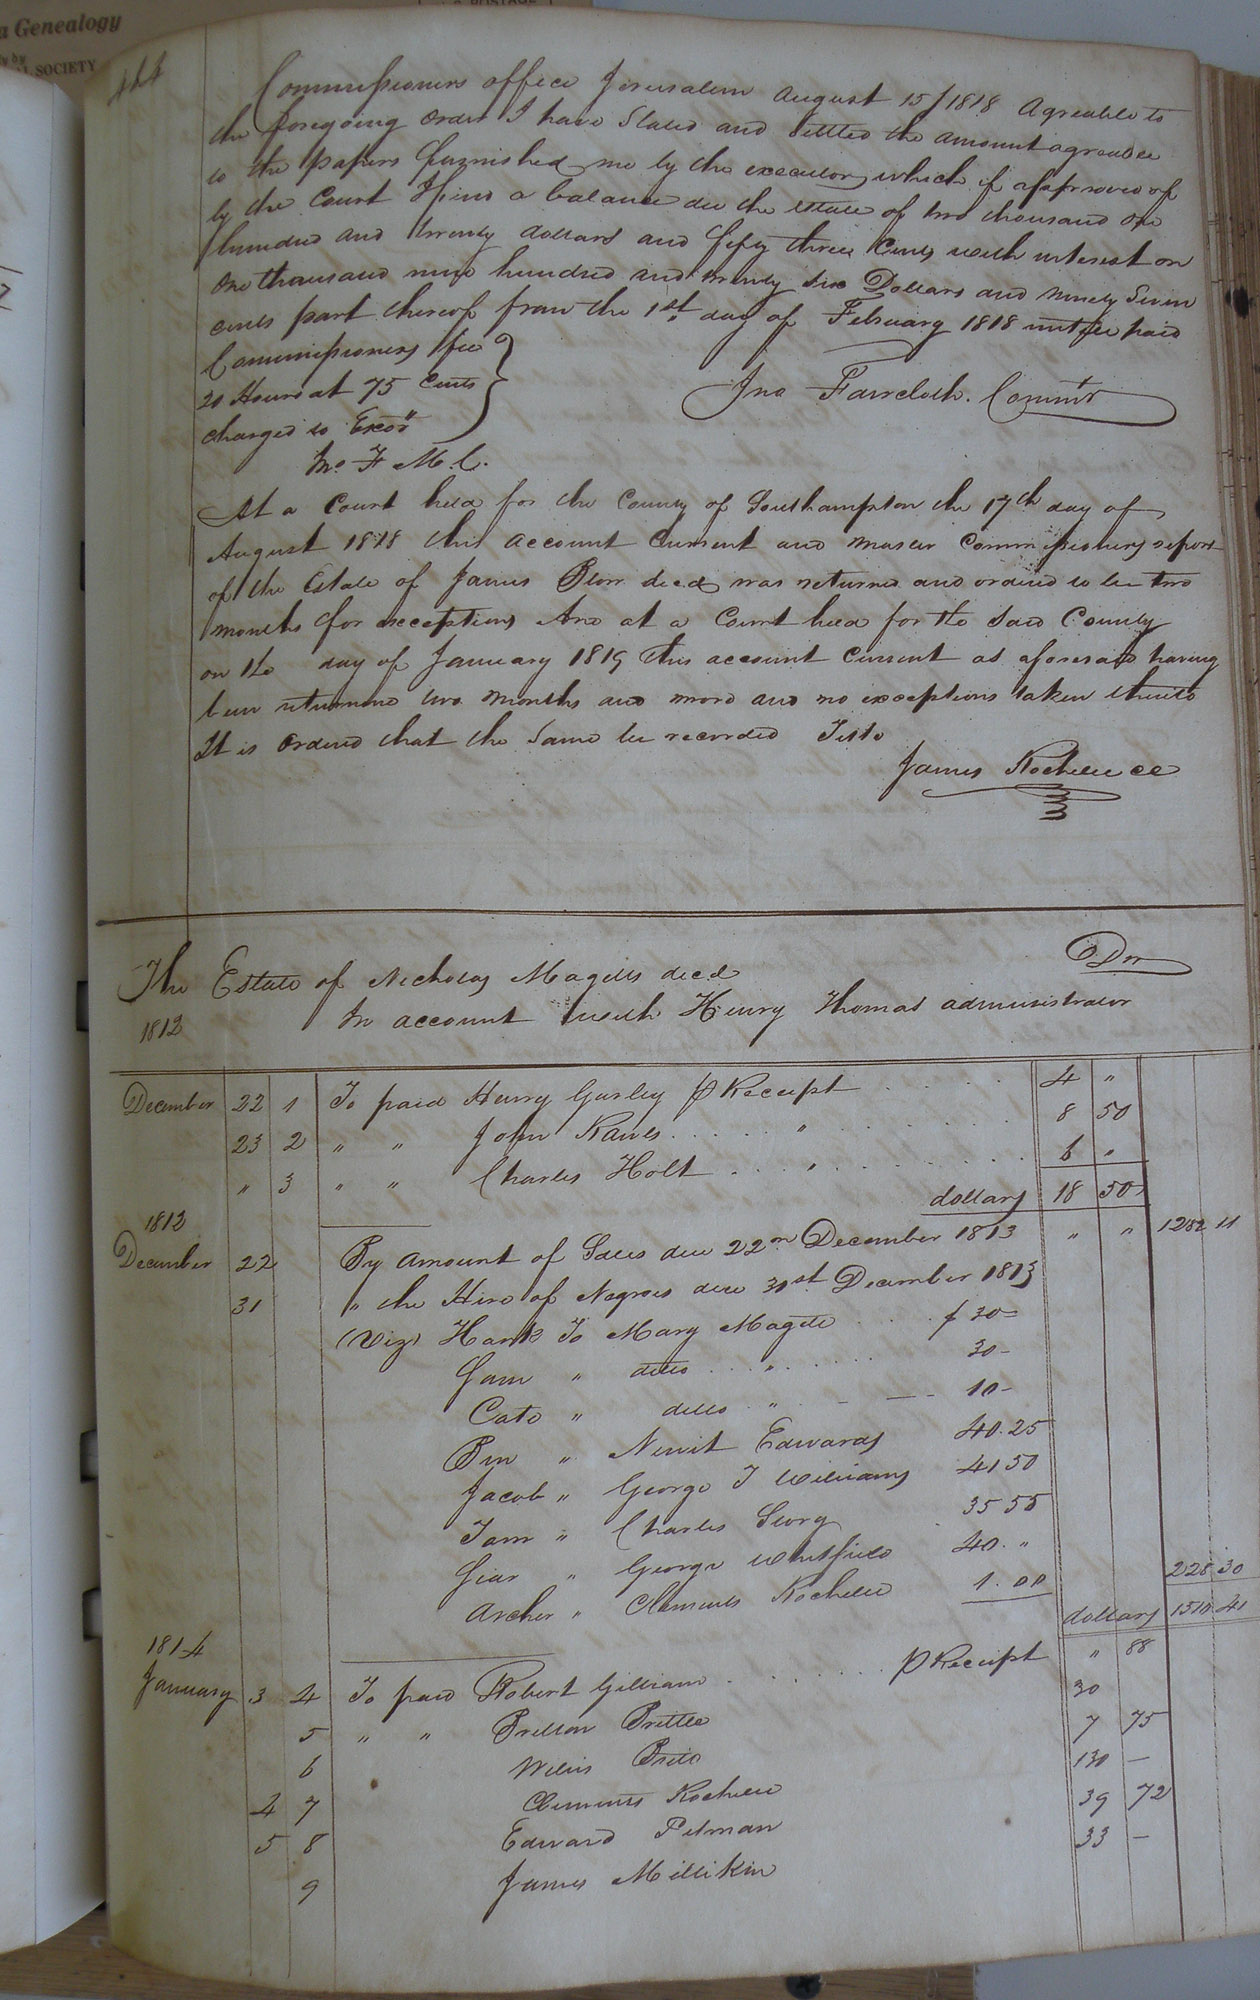 a Genealogy
SOCIETY
POSTAGE
414
Commissioners office Jerusalem August 15th 1818 Agreeable to
the foregoing order I have Stated and Settled the amount agreeable
to the papers furnished me by the executor, which if approved of
by the Court I find a balance due the estate of two thousand one
hundred and twenty dollars and fifty three Cents with interest on
one thousand nine hundred and twenty six Dollars and ninety Seven
cents part thereof from the 1st day of February 1818 untill paid
Commissioners fee
20 Hours at 75 Cents
charged to Exors
Jno Faircloth. Commr
Jno F M. C.
At a Court held for the County of Southampton the 17th day of
August 1818 this account Current and master Commissioners report
of the Estate of James Blow decd was returned and ordered to lie two
months for exceptions And at a Court held for the said County
on the day of January 1819 this account Current as aforesaid having
been returned two months and more and no exceptions taken thereto
It is Ordered that the Same be recorded Teste
James Rochelle cc
The Estate of Nicholas Magett decd Dr
1812 In account with Henry Thomas administrator
December 22 1 To paid Henry Gurley p Receipt 4 "
23 2 " " John Rawls " 8 50
" 3 " " Charles Holt " 6 "
dollars 18 50
1812
December 22 By Amount of Sales due 22nd December 1813 " " 1282 11
31 " the Hire of Negroes due 31st December 1813
(Viz) Hark To Mary Magett $ 30
Sam " ditto " 30
Cato " ditto " 10
Ben " Newit Edwards 40.25
Jacob " George T Williams 41 50
Tom " Charles Story 35 55
" George Whitfield 40 "
Archer " Clements Rochelle 1.00 228 30
dollars 1510 41
1814
January 3 4 To paid Robert Gilliam p Receipt " 88
5 " " Britton Brittle 30
6 Willis Brito 7 75
4 7 Clements Rochelle 130 —
5 8 Edward Pitman 39 72
9 James Millikin 33 —